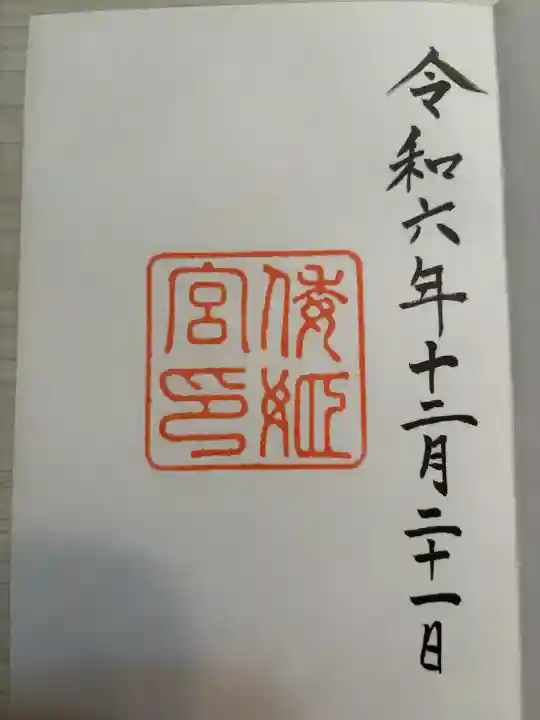 令和六年十二月二十一日
倭姫
宮印